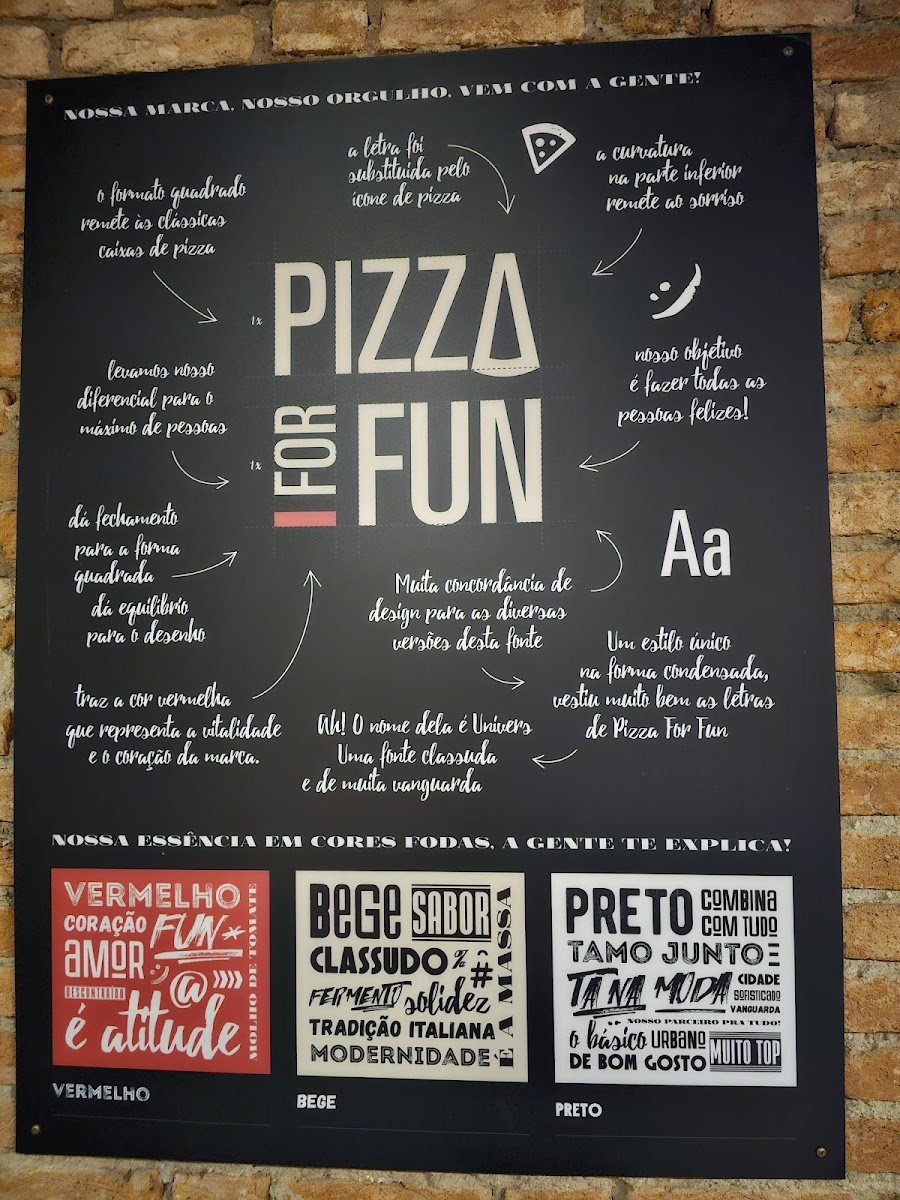 NOSSA MARCA, NOSSO ORGULHO, VEM COM A GENTE!
a letra foi
substituida pelo
ícone de pizza
a curvatura
na parte inferior
remete ao sorriso
o formato quadrado
remete às clássicas
caixas de pizza
1x
PIZZA
nosso objetivo
é fazer todas as
pessoas felizes!
levamos nosso
diferencial para o
máximo de pessoas
1x
FOR
FUN
dá fechamento
para a forma
quadrada
dá equilíbrio
para o desenho
Aa
Muita concordância de
design para as diversas
versões desta fonte
Um estilo único
na forma condensada,
vestiu muito bem as letras
de Pizza For Fun
traz a cor vermelha
que representa a vitalidade
e o coração da marca.
Ah! O nome dela é Univers
Uma fonte classuda
e de muita vanguarda
NOSSA ESSÊNCIA EM CORES FODAS, A GENTE TE EXPLICA!
VERMELHO
CORAÇÃO
FUN*
AMOR
DESCONTRAÍDO
@
é atitude
MOLHO DE TOMATE
VERMELHO
BEGE
SABOR
CLASSUDO
%
#
FERMENTO
solidez
TRADIÇÃO ITALIANA
MODERNIDADE
É A MASSA
BEGE
PRETO
COMBINA
COM TUDO
TAMO JUNTO
TA NA MODA
CIDADE
SOFISTICADO
VANGUARDA
NOSSO PARCEIRO PRA TUDO!
o básico
URBANO
MUITO TOP
DE BOM GOSTO
PRETO